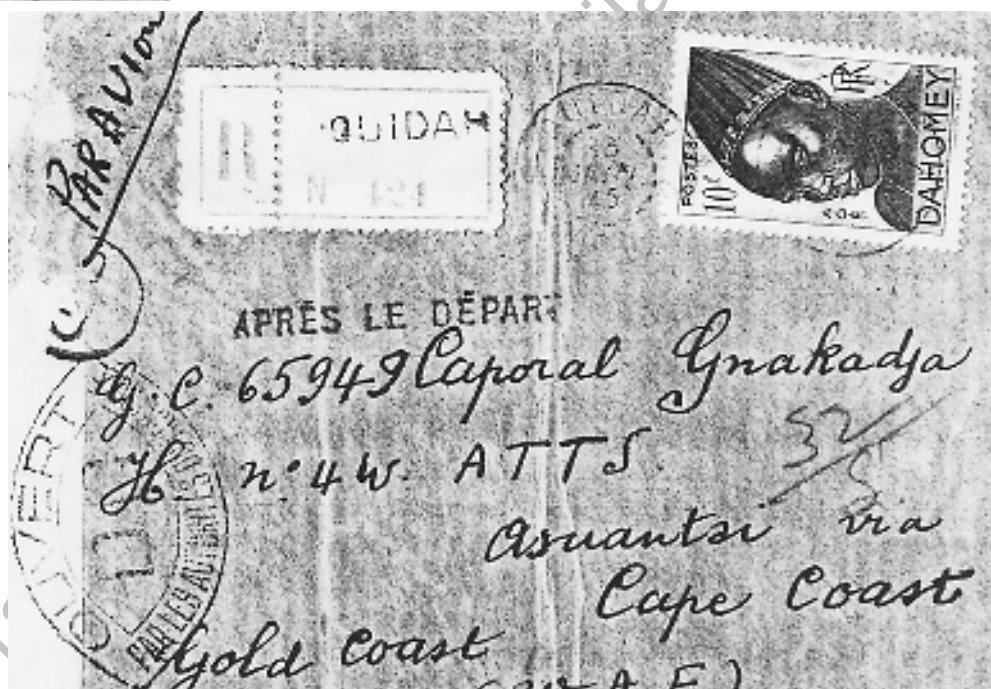 PAR AVION
R OUIDAH
N 421
OUIDAH
POSTES
10F
RF
DAHOMEY
APRÈS LE DÉPART
G.C. 65949 Caporal Gnakadja
H. n° 4 W. ATTS.
Asuantsi via
Cape Coast
Gold Coast
OUVERT
PAR LES AUTORITÉS